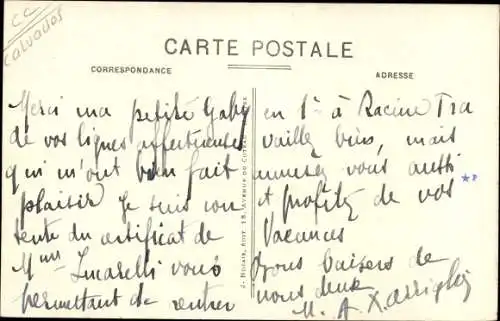 CC
CALVADOS
CARTE POSTALE
CORRESPONDANCE
ADRESSE
Merci ma petite Gaby
de vos lignes affectueuses
qui m'ont bien fait
plaisir Je suis con
tente du certificat de
Mme vous
permettant de rentrer
en 1re à Racine Tra
vaillez bien, mais
amusez vous aussi
et profitez de vos
Vacances
bons baisers de
nous deux
M. A.